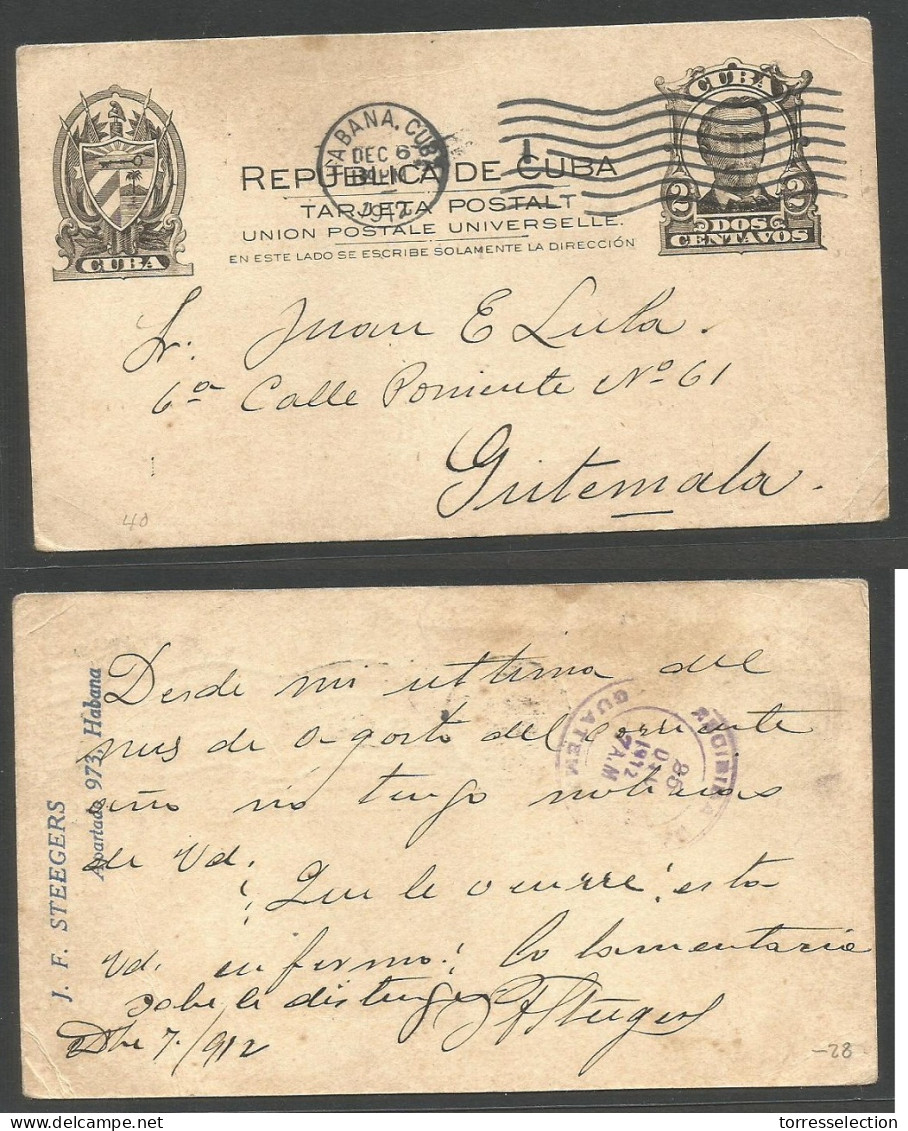 CUBA
HABANA, CUBA
DEC 6
1912
1
REPÚBLICA DE CUBA
TARJETA POSTAL
UNION POSTALE UNIVERSELLE.
EN ESTE LADO SE ESCRIBE SOLAMENTE LA DIRECCIÓN
CUBA
2 2
DOS
CENTAVOS
Sr. Juan E Lula.
6a Calle Poniente No. 61
Guitemala.
40
J. F. STEEGERS
Apartado 973, Habana
Desde mi ultima del
mes de agosto del corriente
año no tengo noticias
de Vd.
¡Que le ocurre! esta
Vd. enfermo! Lo lamentaria
sabe le distingo JFSteegers
Dbe 7./912
GUATEM
25
1912
7 A.M
-28
torresselection